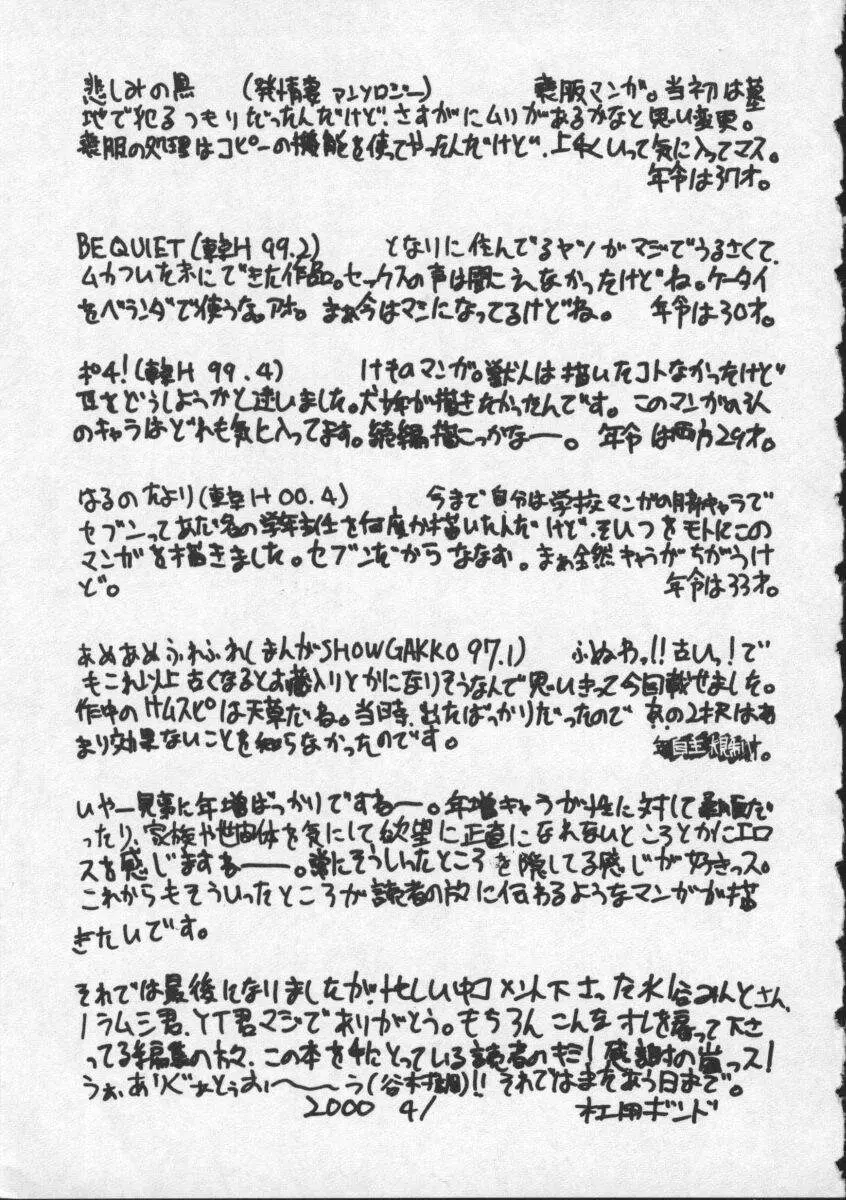 悲しみの黒 (発情妻アンソロジー) 喪服マンガ。当初は墓
地で犯るつもりだったんだけど、さすがにムリがあるかなと思い変更。
喪服の処理はコピーの機能を使ってやったんだけど、上手くいって気に入ってマス。
年令は37才。
BE QUIET (華H 99.2) となりに住んでるヤツがマジでうるさくて、
ムカついた末にできた作品。セックスの声は聞こえなかったけどね。ケータイ
をベランダで使うな。アホ。まぁ今はマンになってるけどね。 年令は30才。
ポチ! (華H 99.4) けものマンガ。獣人は描いたコトなかったけど
耳をどうしようかと迷いました。犬少年が描きたかったんです。このマンガの3人
のキャラはどれも気に入ってます。続編描こっかなー。 年令は両方29才。
はるのたより (華H 00.4) 今まで自分は学校マンガの脇キャラで
セブンってあだ名の学年主任を何度か描いたんだけど、そいつをモトにこの
マンガを描きました。セブンだからななお。まぁ全然キャラがちがうけ
ど。 年令は33才。
あめあめふれふれ (まんがSHOWGAKKO 97.1) ふぬわっ!!古いっ!で
もこれ以上古くなるとお蔵入りとかになりそうなんで思いきって今回載せました。
作中のサムスピは天草だね。当時、出たばっかりだったので あの2択はあ
まり効果ないことを知らなかったのです。 年自主規制才。
いやー見事に年増ばっかりですねー。年増キャラが性に対して
ったり、家族や世間体を気にして欲望に正直になれないところとかにエロ
スを感じますねー。常にそういったところを隠してる感じが好きっス。
これからもそういったところが読者の方に伝わるようなマンガが描
きたいです。
それでは最後になりましたが、忙しい中コメント下さった水谷みんとさん、
ノラムシ君、YT君マジでありがとう。もちろんこんなオレを雇って下さ
ってる編集の方々、この本を手にとっている読者のキミ!感謝の嵐っス!
うぉ、ありぐぁとぅおぉ〜う(谷村)!!それではまたあう日まで。
2000 4/ 杜用ボンド